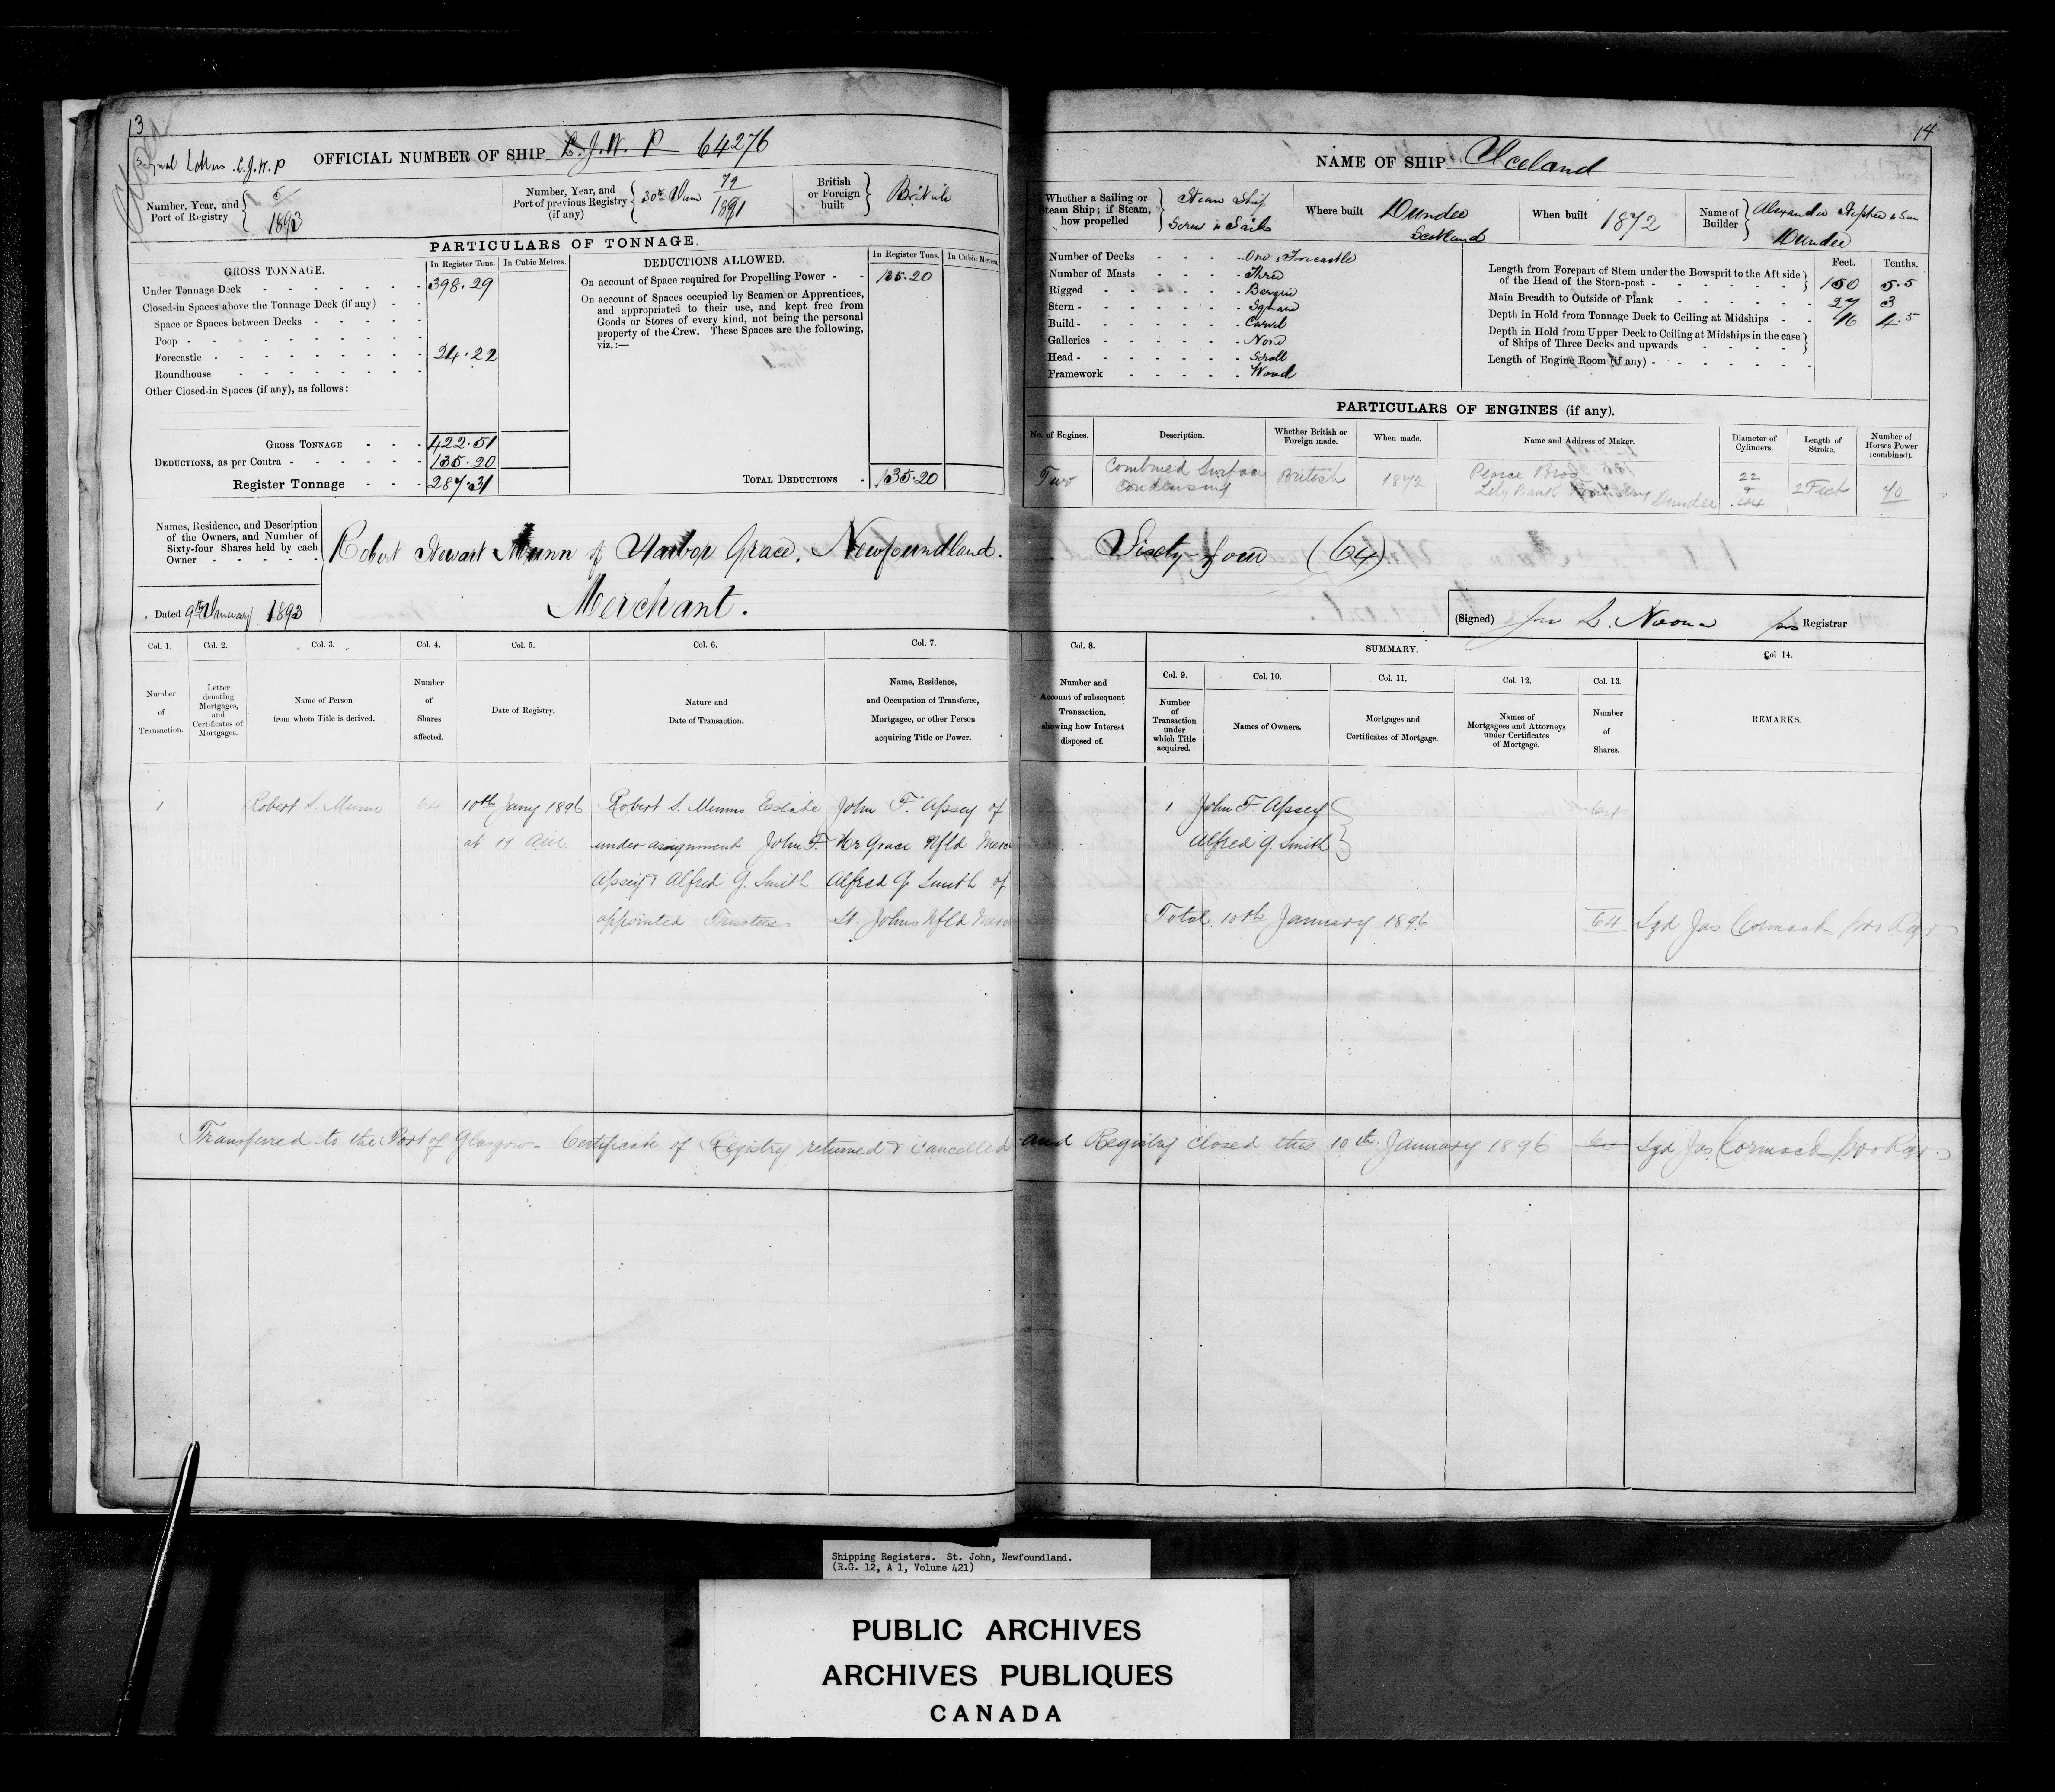 13
Signal Letters L.J.W.P
OFFICIAL NUMBER OF SHIP L.J.W.P 64276
Closed
Number, Year, and Port of Registry 5/1893
Number, Year, and Port of previous Registry (if any) 30th 79/1891
British or Foreign built British
PARTICULARS OF TONNAGE.
GROSS TONNAGE. In Register Tons. In Cubic Metres.
Under Tonnage Deck 398.29
Closed-in Spaces above the Tonnage Deck (if any)
Space or Spaces between Decks
Poop
Forecastle 24.22
Roundhouse
Other Closed-in Spaces (if any), as follows:
GROSS TONNAGE 422.51
DEDUCTIONS, as per Contra 135.20
Register Tonnage 287.31
DEDUCTIONS ALLOWED. In Register Tons. In Cubic Metres.
On account of Space required for Propelling Power 135.20
On account of Spaces occupied by Seamen or Apprentices,
and appropriated to their use, and kept free from
Goods or Stores of every kind, not being the personal
property of the Crew. These Spaces are the following,
viz.:—
TOTAL DEDUCTIONS 135.20
Names, Residence, and Description
of the Owners, and Number of
Sixty-four Shares held by each
Owner
Robert Stewart Munn of Harbor Grace, Newfoundland.
Merchant.
Dated 9th January 1893
14
NAME OF SHIP Iceland
Whether a Sailing or Steam Ship; if Steam, how propelled Steam Ship Screw & Sails
Where built Dundee Scotland
When built 1872
Name of Builder Alexander Stephen & Son Dundee
Number of Decks One & Forecastle
Number of Masts Three
Rigged Barque
Stern Square
Build Carvel
Galleries None
Head Scroll
Framework Wood
Feet. Tenths.
Length from Forepart of Stem under the Bowsprit to the Aft side
of the Head of the Stern-post 150 5.5
Main Breadth to Outside of Plank 27 3
Depth in Hold from Tonnage Deck to Ceiling at Midships 16 4.5
Depth in Hold from Upper Deck to Ceiling at Midships in the case
of Ships of Three Decks and upwards
Length of Engine Room (if any)
PARTICULARS OF ENGINES (if any).
No. of Engines. Description. Whether British or Foreign made. When made. Name and Address of Maker. Diameter of Cylinders. Length of Stroke. Number of Horses Power (combined).
Two Combined Surface Condensing British 1872 Pearce Bros Lily Bank Foundry Dundee 22 & 44 2 Feet 70
Sixty-four (64)
(Signed) Registrar
Col. 1. Col. 2. Col. 3. Col. 4. Col. 5. Col. 6. Col. 7.
Number of Transaction.
Letter denoting Mortgages, and Certificates of Mortgages.
Name of Person from whom Title is derived.
Number of Shares affected.
Date of Registry.
Nature and Date of Transaction.
Name, Residence, and Occupation of Transferee, Mortgagee, or other Person acquiring Title or Power.
Col. 8. SUMMARY. Col 14.
Number and Account of subsequent Transaction, showing how Interest disposed of.
Col. 9. Col. 10. Col. 11. Col. 12. Col. 13.
Number of Transaction under which Title acquired.
Names of Owners.
Mortgages and Certificates of Mortgage.
Names of Mortgagees and Attorneys under Certificates of Mortgage.
Number of Shares.
REMARKS.
1 Robert S. Munn 64 10th Jany 1896 Robert S. Munns Estate John F. Apsey of
at 11 AM. under assignment John F. Hr Grace Nfld
Apsey & Alfred G. Smith Alfred G. Smith of
appointed Trustees St. Johns Nfld
1 John F. Apsey 64
Alfred G. Smith
Total 10th January 1896 64 Sgd Jas Cormack
Transferred to the Port of Glasgow - Certificate of Registry returned & cancelled and Registry closed this 10th January 1896 64 Sgd Jas Cormack
Shipping Registers. St. John, Newfoundland.
(R.G. 12, A 1, Volume 421)
PUBLIC ARCHIVES
ARCHIVES PUBLIQUES
CANADA